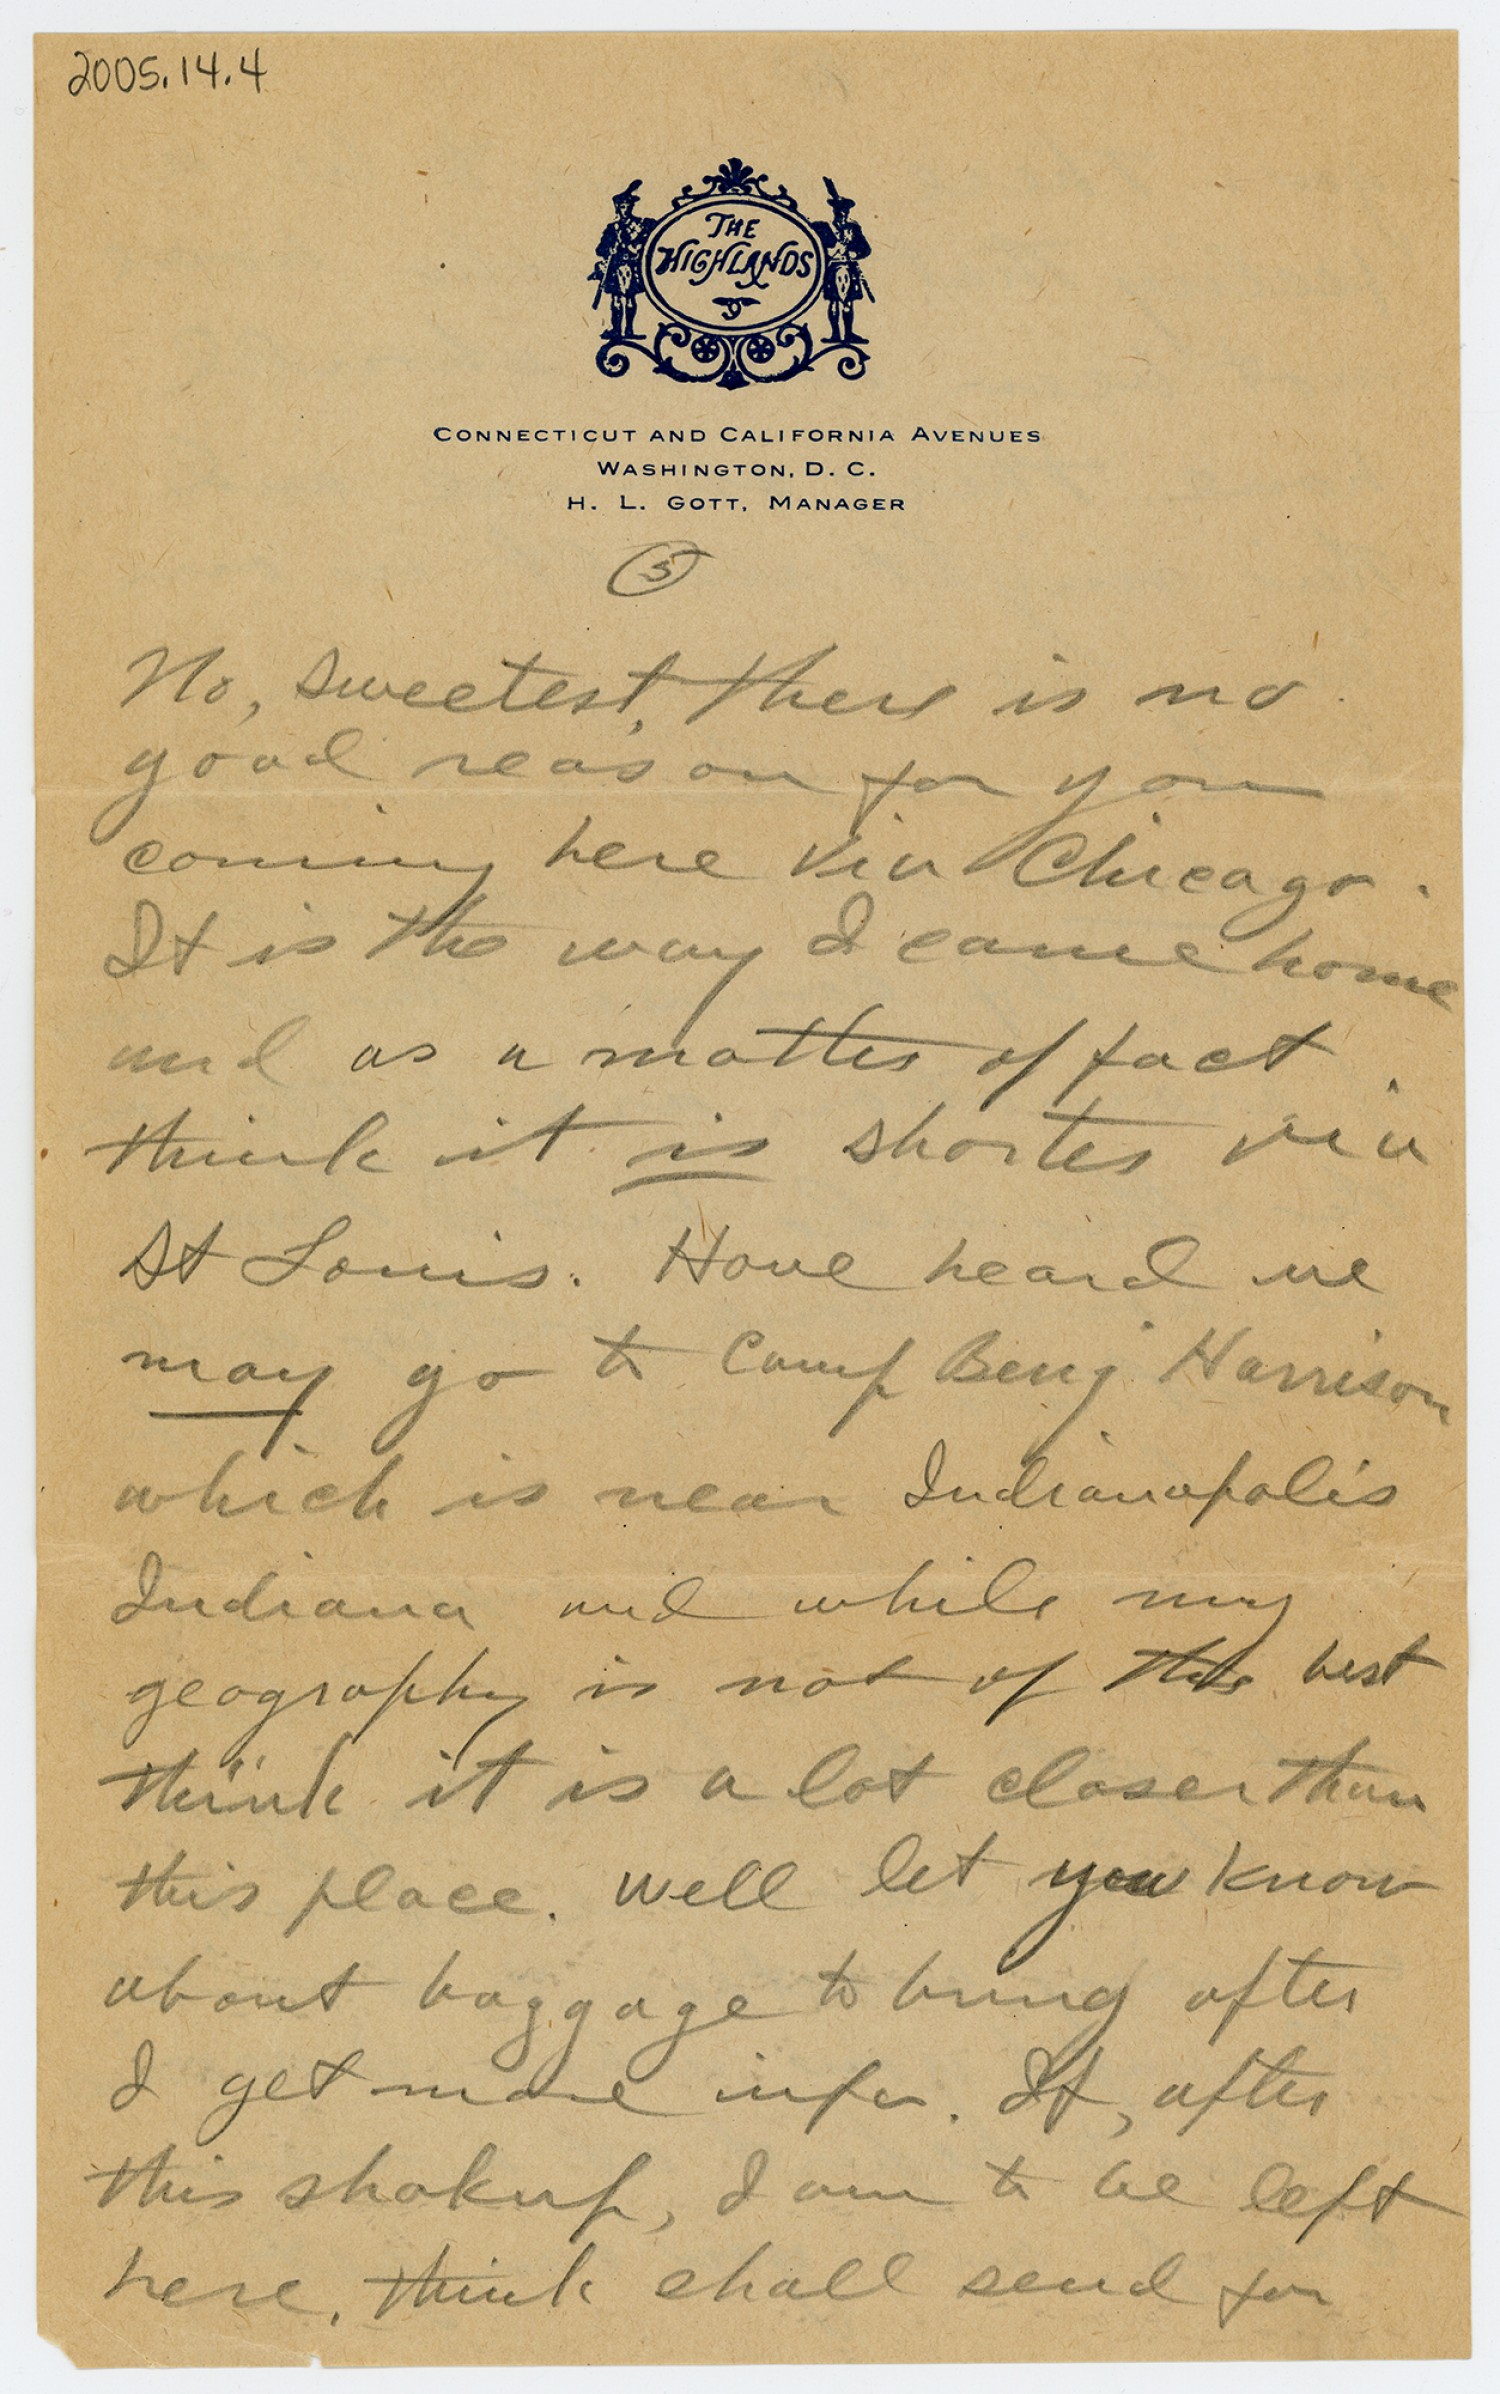 2005.14.4
THE
HIGHLANDS
CONNECTICUT AND CALIFORNIA AVENUES
WASHINGTON, D. C.
H. L. GOTT, MANAGER
5
No, sweetest, there is no
good reason for your
coming here via Chicago.
It is the way I came home
and as a matter of fact
think it is shorter via
St Louis. Have heard we
may go to Camp Benj Harrison
which is near Indianapolis
Indiana and while my
geography is not of the best
think it is a lot closer than
this place. Well let you know
about baggage to bring after
I get more info. If, after
this shakup, I am to be left
here, think shall send for